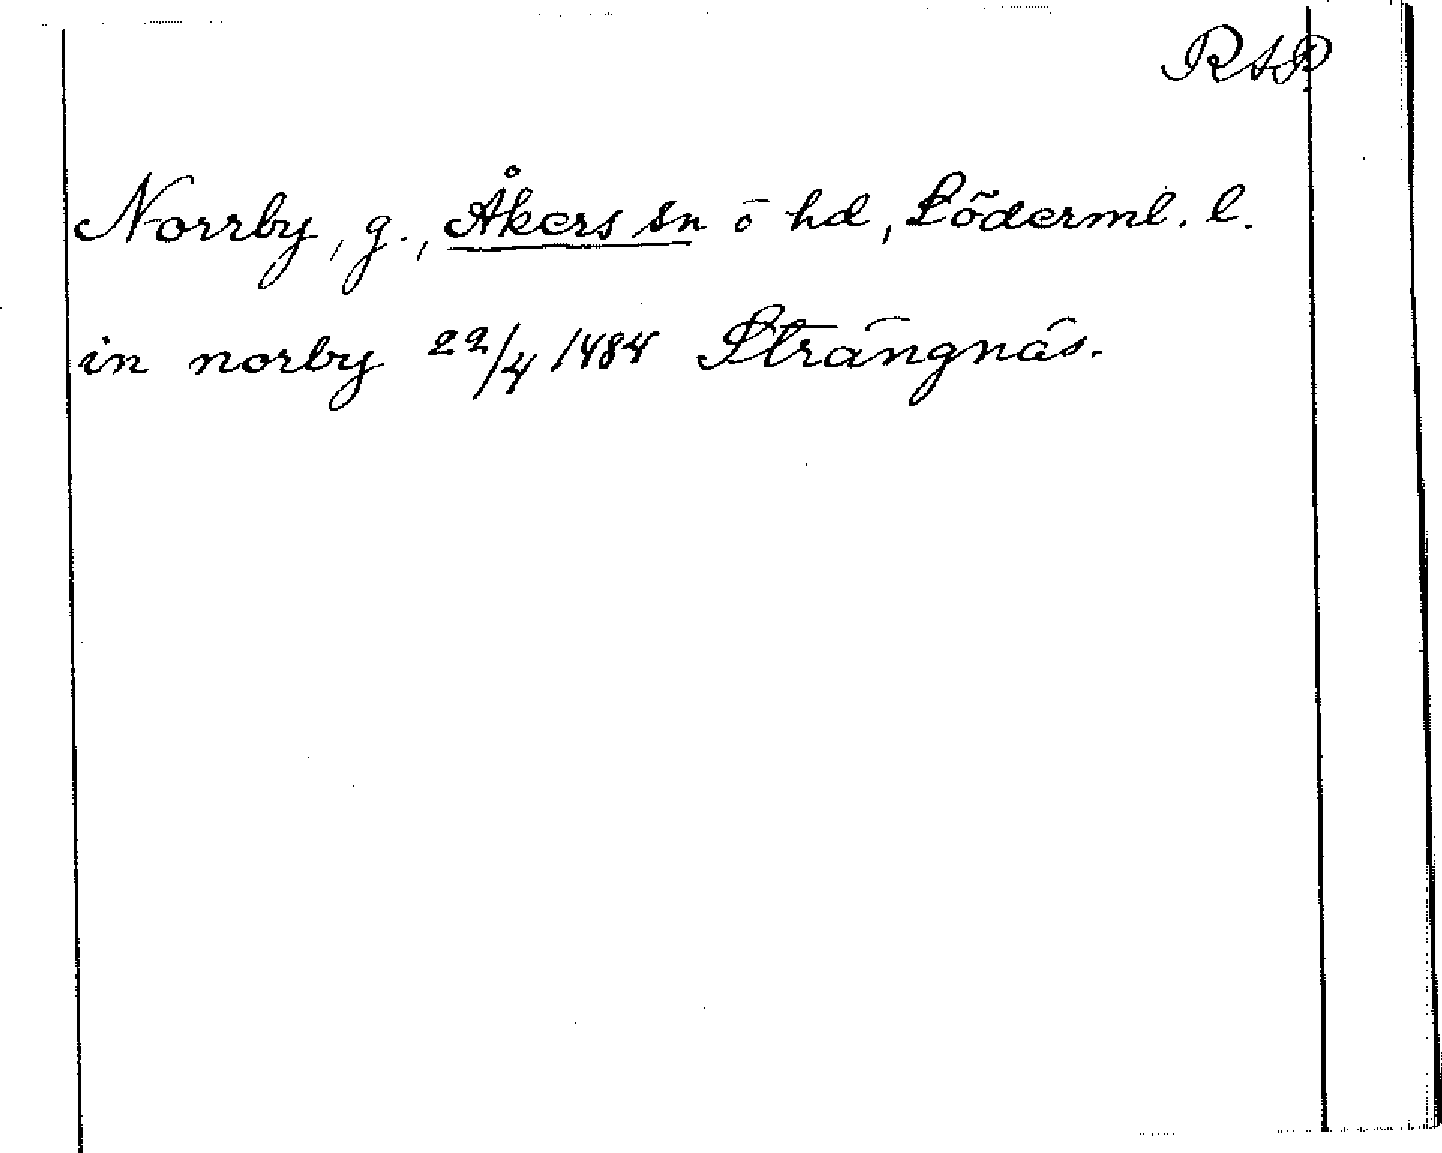 RAP
Norrby, g., Åkers sn o ö hd, Söderml. l.
in norby 22/4 1484 Strängnäs.